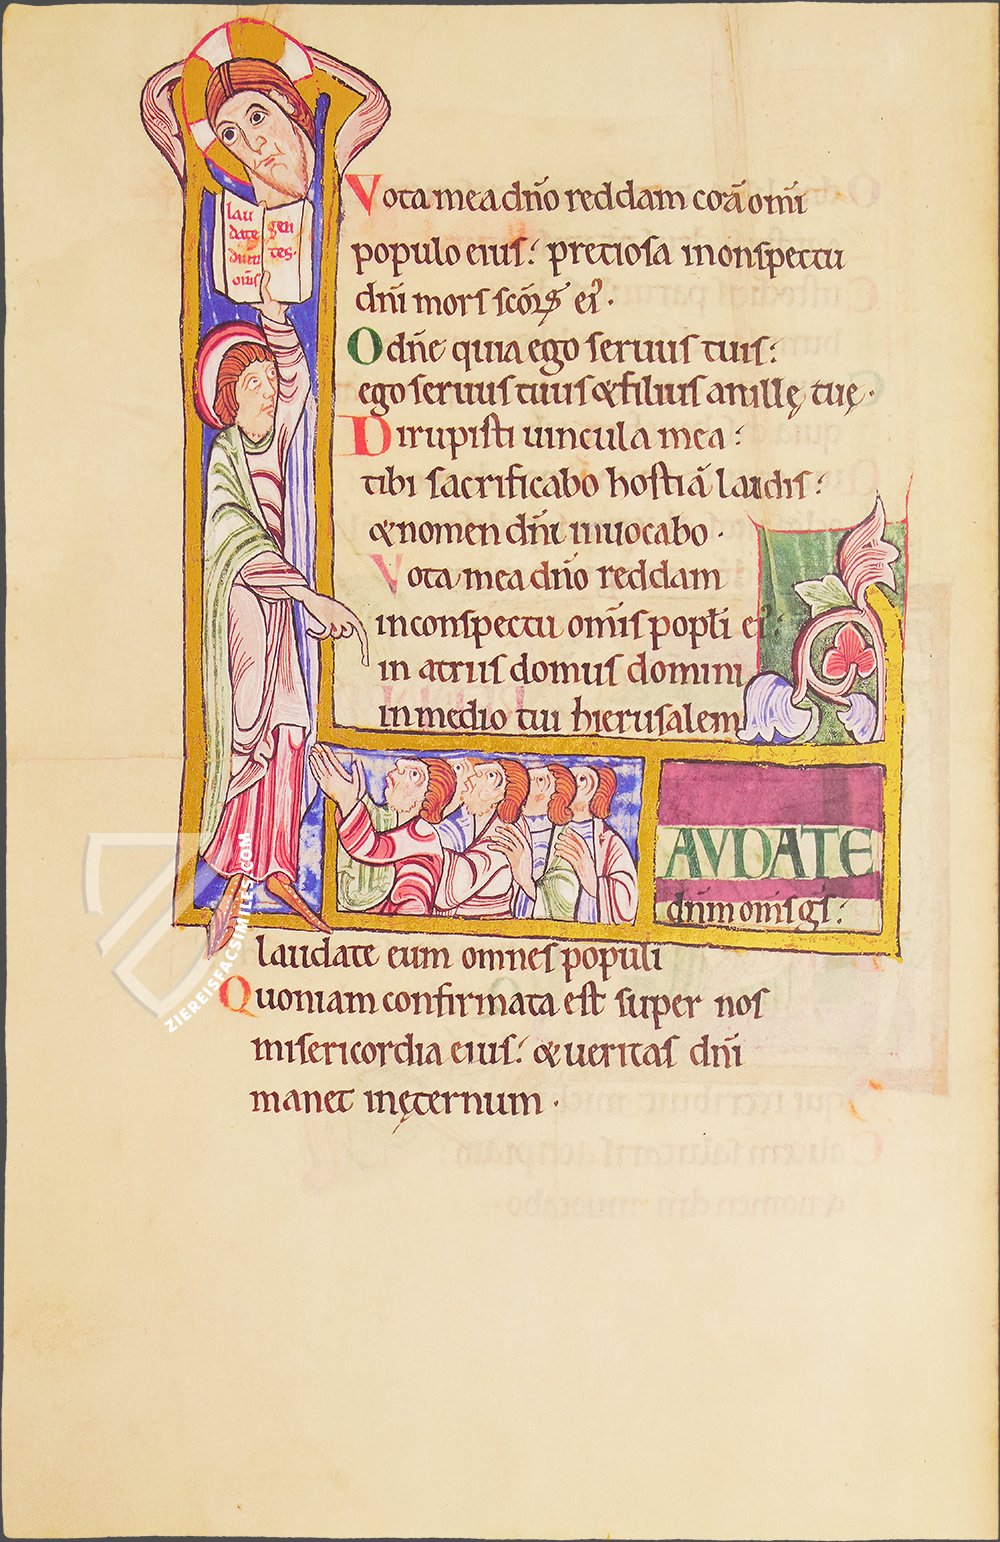 lau
date
dnm
om̄s
gen
tes.
Vota mea dn̄o reddam corā om̄i
populo eius: preciosa inonspectu
dn̄i mors scōꝝ ei᾽.
O dn̄e quia ego seruus tuis:
ego seruus tuus & filius anillę tuę.
Dirupisti uincula mea:
tibi sacrificabo hostiā laudis:
& nomen dn̄i inuocabo.
Vota mea dn̄o reddam
inconspectu om̄is popl̄i ei᾽:
in atriis domus domini
in medio tui hierusalem
AVDATE
dn̄m om̄s gs̄:
laudate eum omnes populi
Quoniam confirmata est super nos
misericordia eius: & ueritas dn̄i
manet inęternum.
ZIEREISFACSIMILES.COM